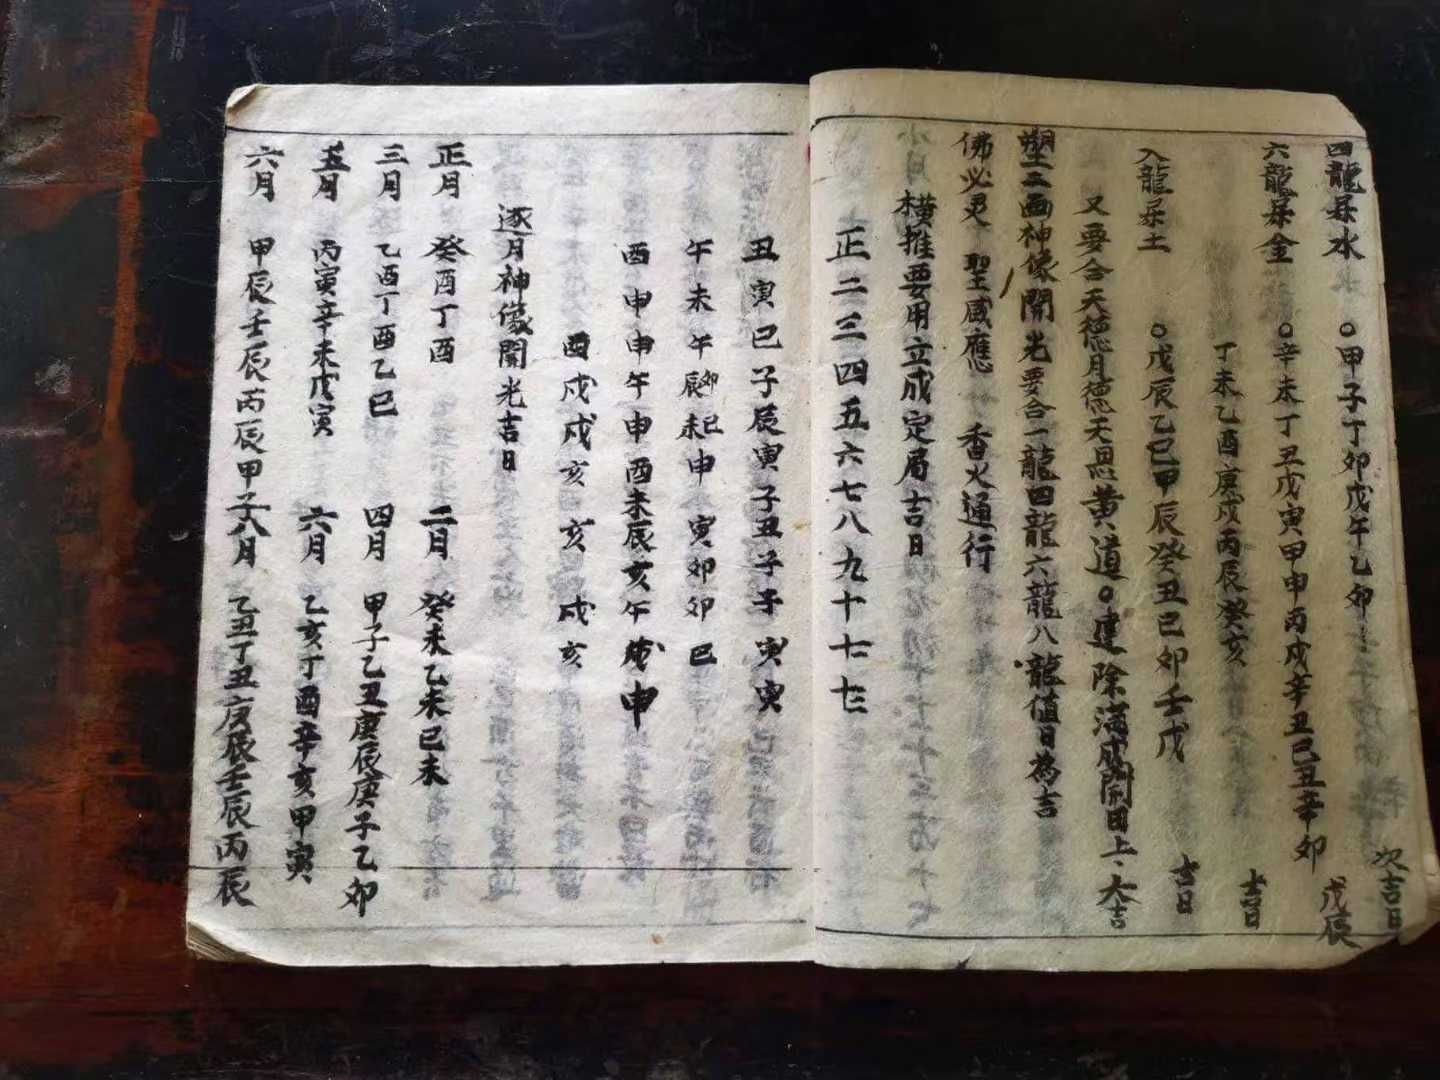 四龍屬水 ○甲子丁卯戊午乙卯 次吉日
六龍屬金 ○辛未丁丑戊寅甲申丙戌辛丑己丑辛卯 戊辰
丁未乙酉庚戌丙辰癸亥 吉日
八龍屬土 ○戊辰乙巳甲辰癸丑己卯壬戌 吉日
又要合天德月德天恩黄道○建除滿成開日上大吉
塑工画神像開光要合一龍四龍六龍八龍值日為吉
佛必灵 聖感應 香火通行
橫推要用立成定局吉日
正二三四五六七八九十十一十二
丑寅巳子辰寅子丑子子寅寅
午未午辰卯未巳申寅卯卯巳
酉申申午申酉未辰亥午戌申
酉戌戌亥 亥 戌亥
逐月神像開光吉日
正月 癸酉丁酉 二月 癸未乙未己未
三月 乙酉丁酉乙巳 四月 甲子乙丑庚辰庚子乙卯
五月 丙寅辛未戊寅 六月 乙亥丁酉辛亥甲寅
六月 甲辰壬辰丙辰甲子 八月 乙丑丁丑庚辰壬辰丙辰